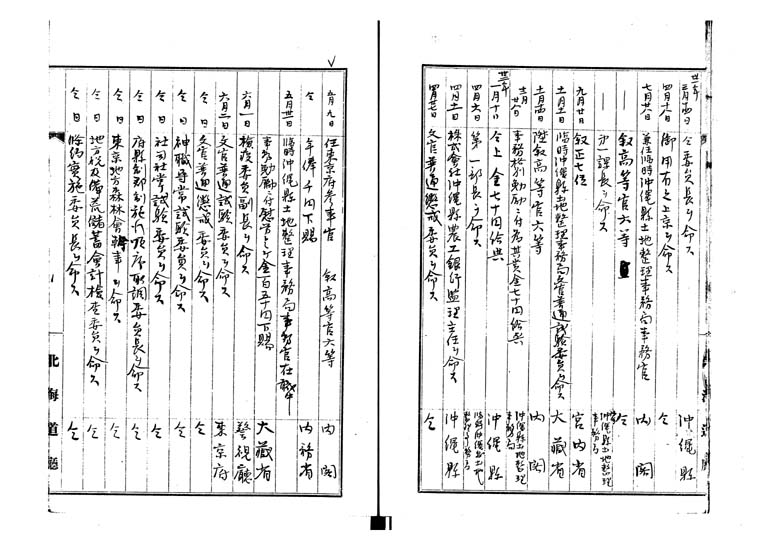 卅一年
三月十四日 仝委員長ヲ命ス 沖縄縣
四月十八日 御用有之上京ヲ命ス 仝
七月廿八日 兼任臨時沖縄縣土地整理事務局事務官 内閣
叙高等官六等 仝
第一課長ヲ命ス 臨時沖縄縣土地整理事務局
九月廿日 叙正七位 宮内省
土地整理事務局文官普通試験委員ヲ命ス 大藏省
陞叙高等官六等 内閣
事務格別勉勵ニ付為其賞金七十円給与 臨時沖縄縣土地整理事務局
卅二年
一月十日 仝上金七十円給与 沖縄縣
四月六日 第一部長ヲ命ス 臨時沖縄縣土地整理事務局
株式會社沖縄縣農工銀行監理主任ヲ命ス 沖縄縣
文官普通懲戒委員ヲ命ス 仝
五月九日 任東京府参事官 叙高等官六等 内閣
仝 年俸千円下賜 内務省
五月廿一日 臨時沖縄縣土地整理事務局事務官在職中
事務勉勵ニ付慰労トシテ金百五十円下賜 大藏省
六月一日 検疫委員副長ヲ命ス 警視廳
六月二日 文官普通試験委員ヲ命ス 東京府
仝日 文官普通懲戒委員ヲ命ス 仝
仝日 神職尋常試験委員ヲ命ス
仝日 社司社掌試験委員ヲ命ス
仝日 府縣制郡制施行順序取調委員長ヲ命ス
仝日 東京地方森林會議事ヲ命ス
仝日 地方税及備荒儲蓄會計検査委員ヲ命ス 仝
仝日 條約實施委員長ヲ命ス 仝
北海道廳